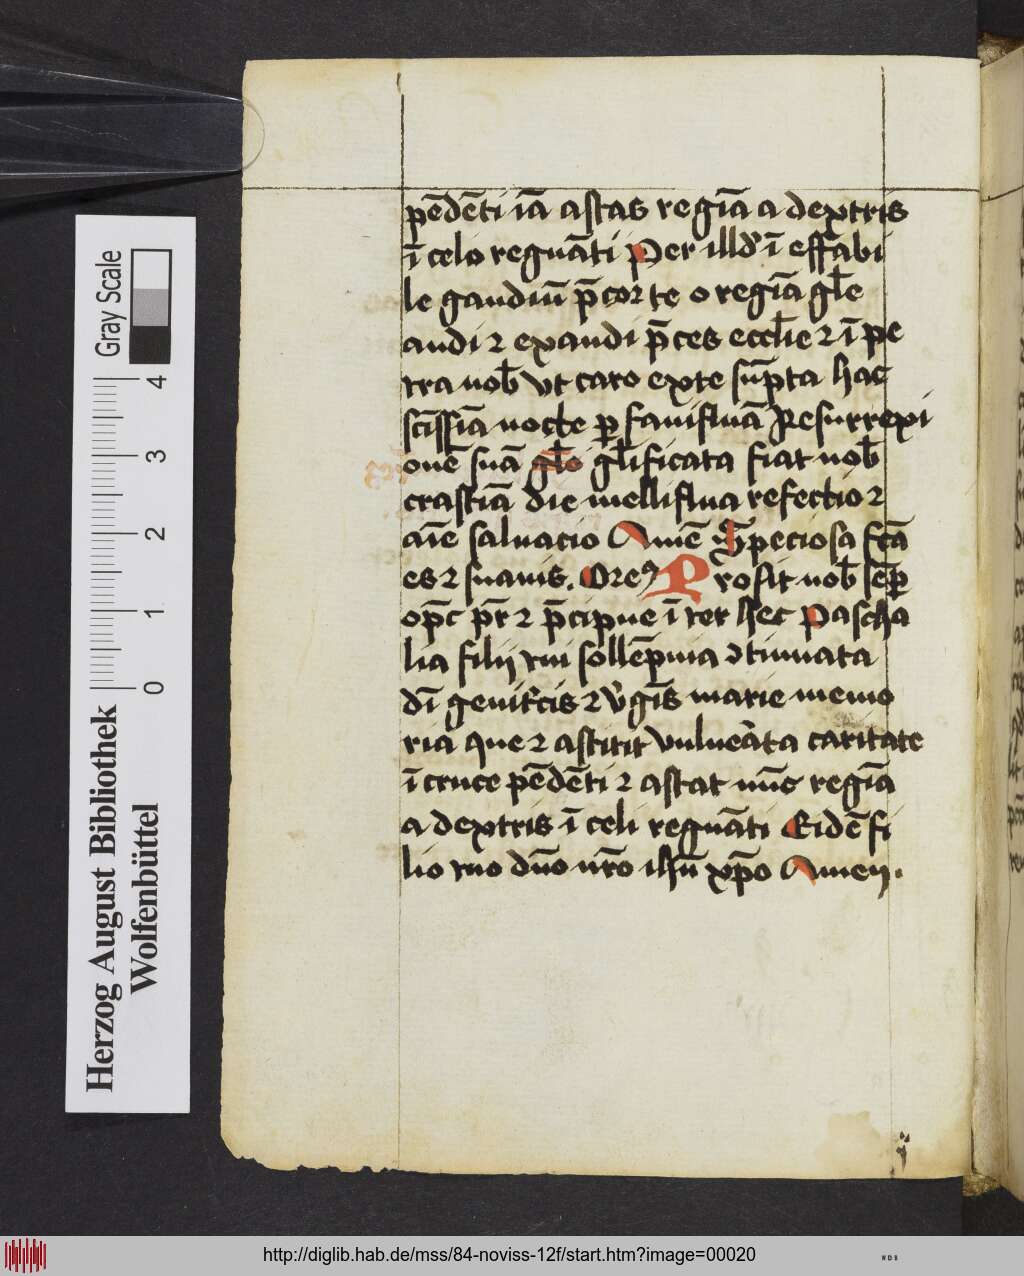 pēdēti iā astas regīa a dextris
ī celo regnāti Per illd' ī effabi
le gaudiū p̄cor te o regīa gl̄e
audi ⁊ exaudi p̄ces eccl̄ie ⁊ ī pe
tra nob̄ vt caro exte sūpta hac
sc̄issīa nocte ꝑ fauifluā Resurrexi
onē suā gl̄o gl̄ificata fiat nob̄
crastīa die melliflua refectio ⁊
aīe saluacio Amē Speciosa fcā
es ⁊ suauis. Oreꝰ Prosit nob̄ sēꝑ
op̄c pr̄ ⁊ p̄cipue ī ter hec Pascha
lia filij tui sollēpnia ↄtinuata
dī genit'cis ⁊ v'gīs marie memo
ria que ⁊ astitit vulneāta caritate
ī cruce pēdēti ⁊ astat nūc regīa
a dextris ī celi regnāti Eidē fi
lio tuo dn̄o nr̄o ihū xp̄o Amen.
Gray Scale
4
3
2
1
0
Herzog August Bibliothek
Wolfenbüttel
http://diglib.hab.de/mss/84-noviss-12f/start.htm?image=00020